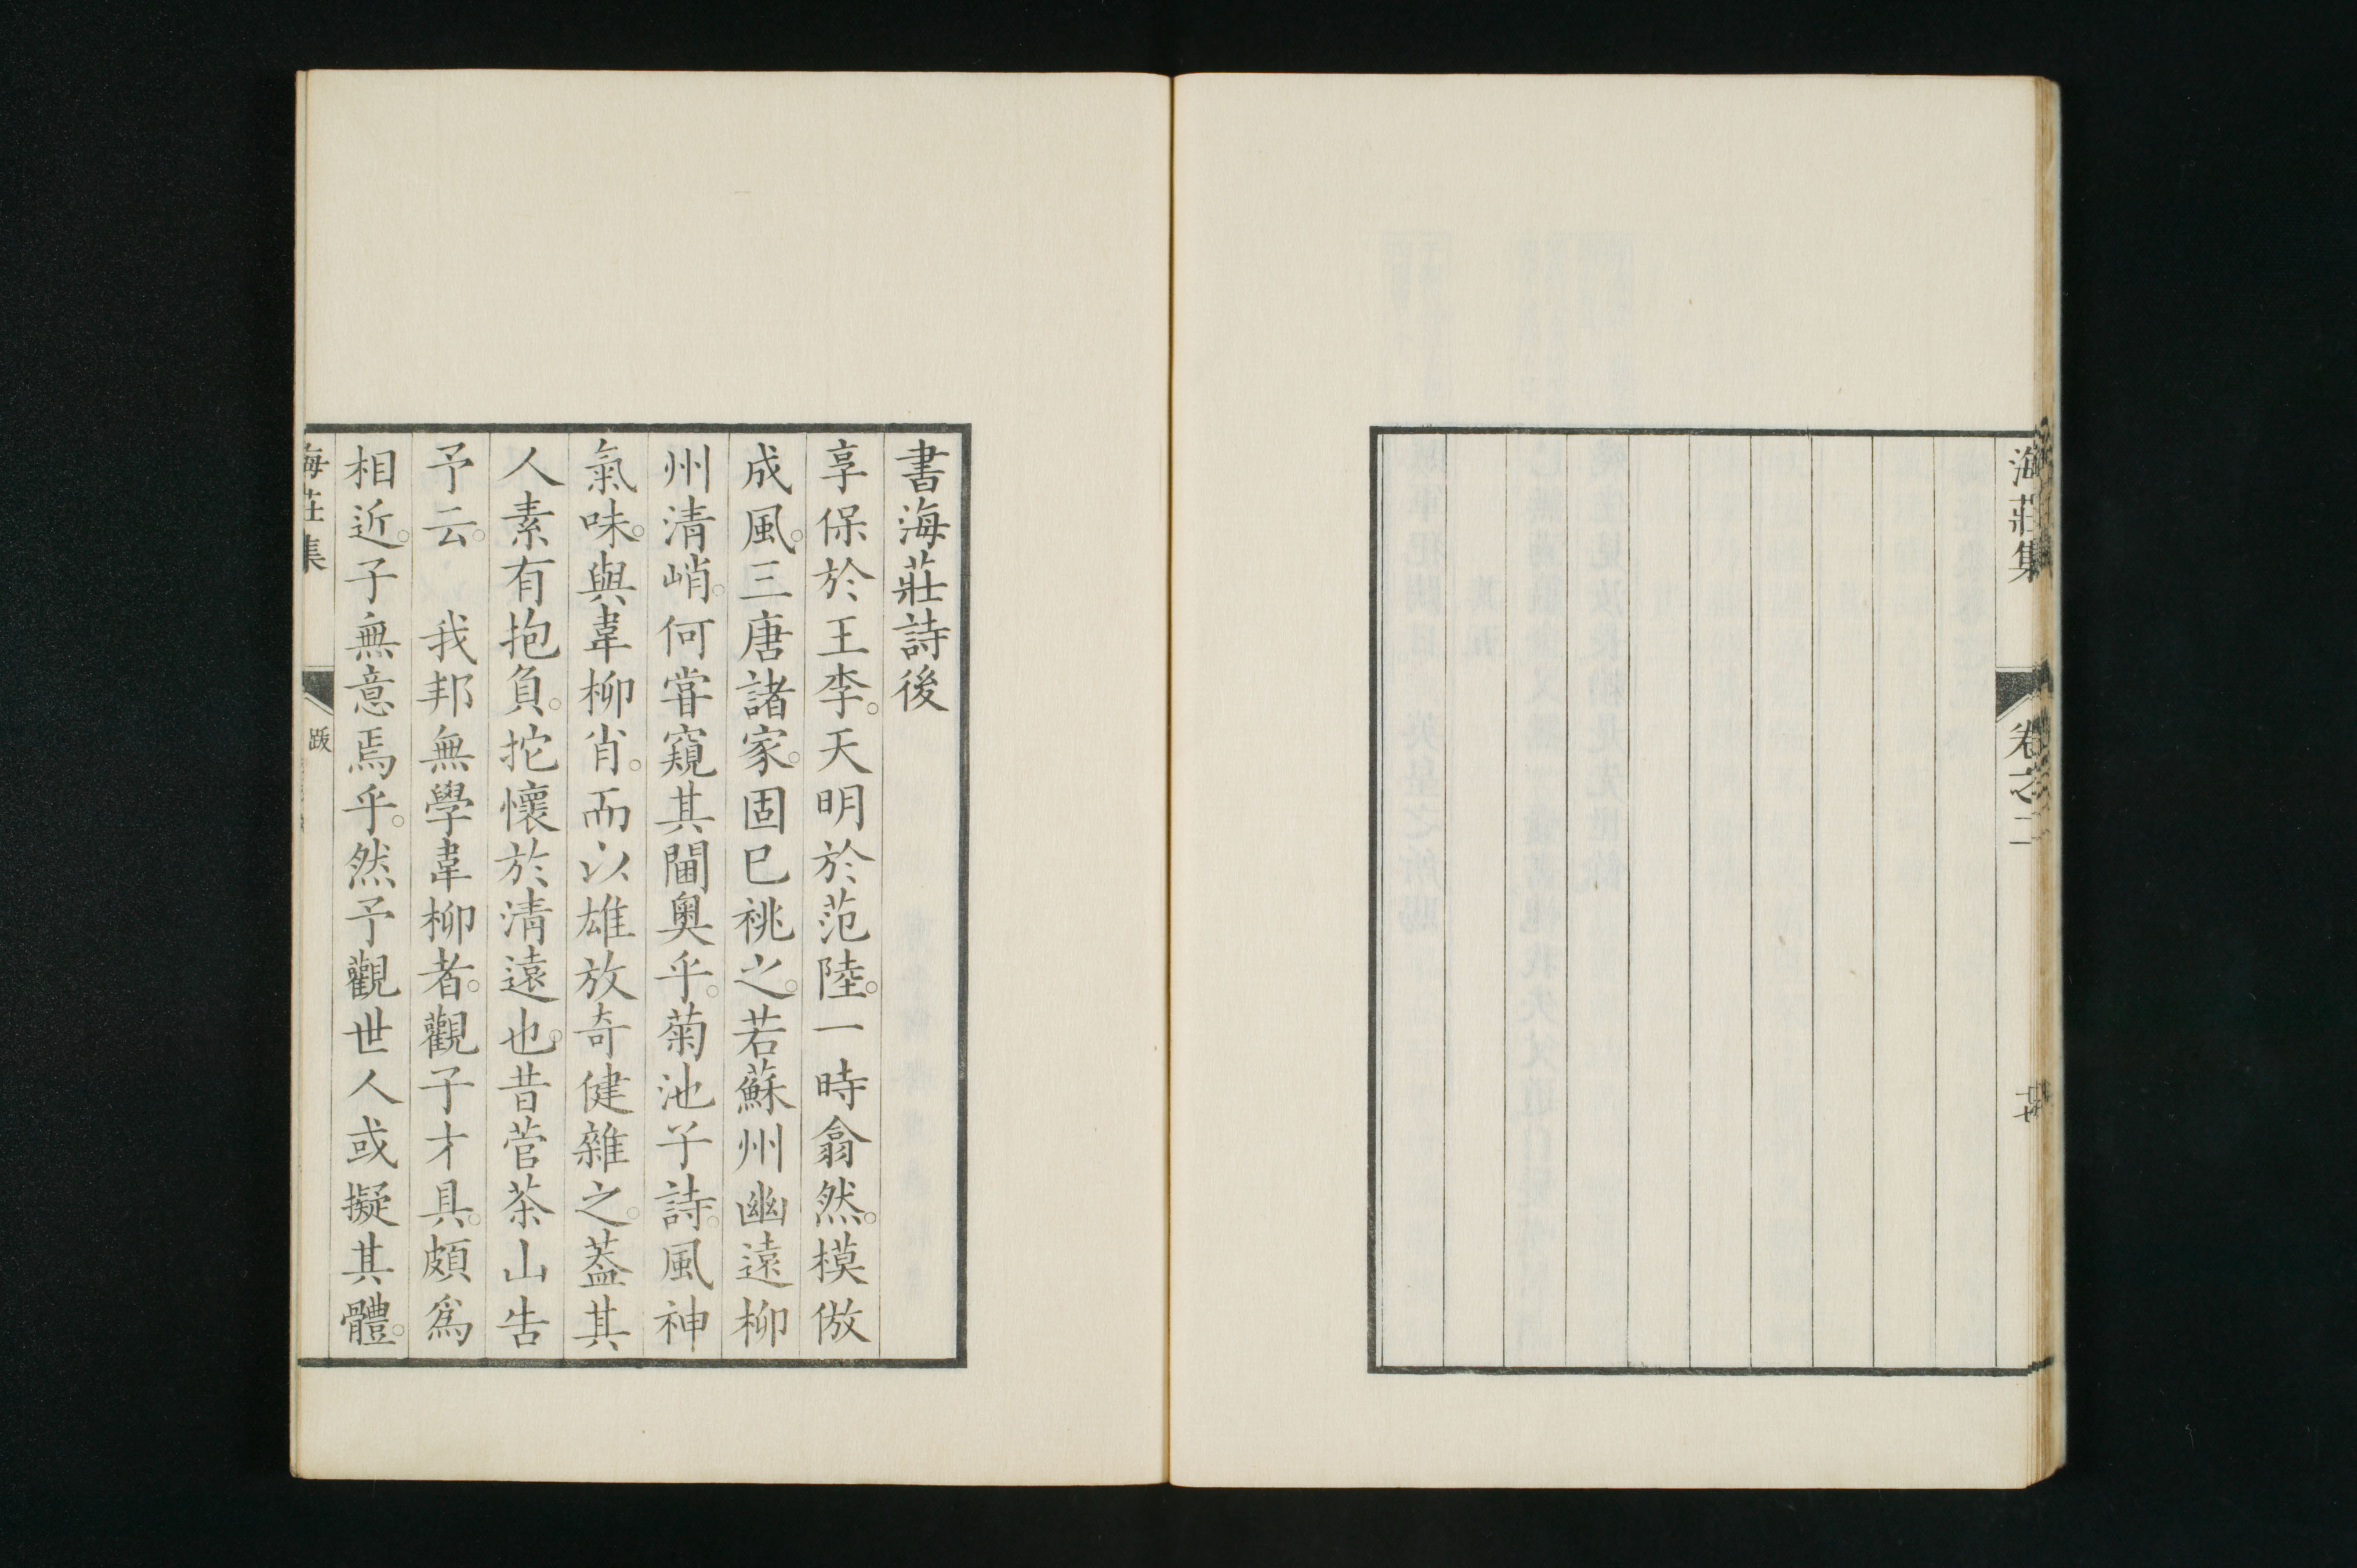 海莊集
卷之二
書海莊詩後
享保於王李。天明於范陸。一時翕然。模倣
成風。三唐諸家。固已祧之。若蘇州幽遠柳
州清峭。何甞窺其閫奧乎。菊池子詩。風神
氣味。與韋柳肖。而以雄放奇健雜之。葢其
人素有抱負。拕懷於清遠也。昔菅茶山告
予云。　我邦無學韋柳者。觀子才具。頗爲
相近。子無意焉乎。然予觀世人或擬其體。
海莊集
跋